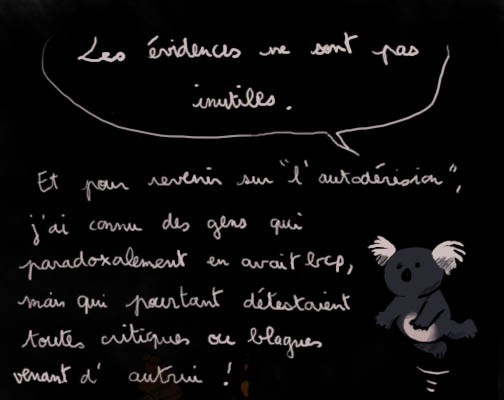 Les évidences ne sont pas
inutiles.
Et pour revenir sur "l'autodérision",
j'ai connu des gens qui
paradoxalement en avait bcp,
mais qui pourtant détestaient
toutes critiques ou blagues
venant d'autrui !